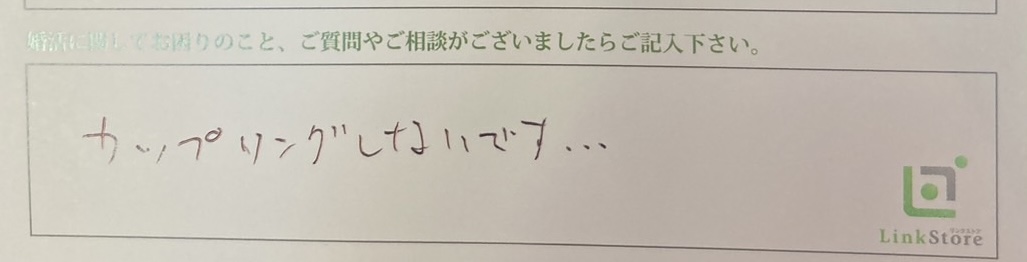 婚活に関してお困りのこと、ご質問やご相談がございましたらご記入下さい。
カップリングしないです...
LinkStore